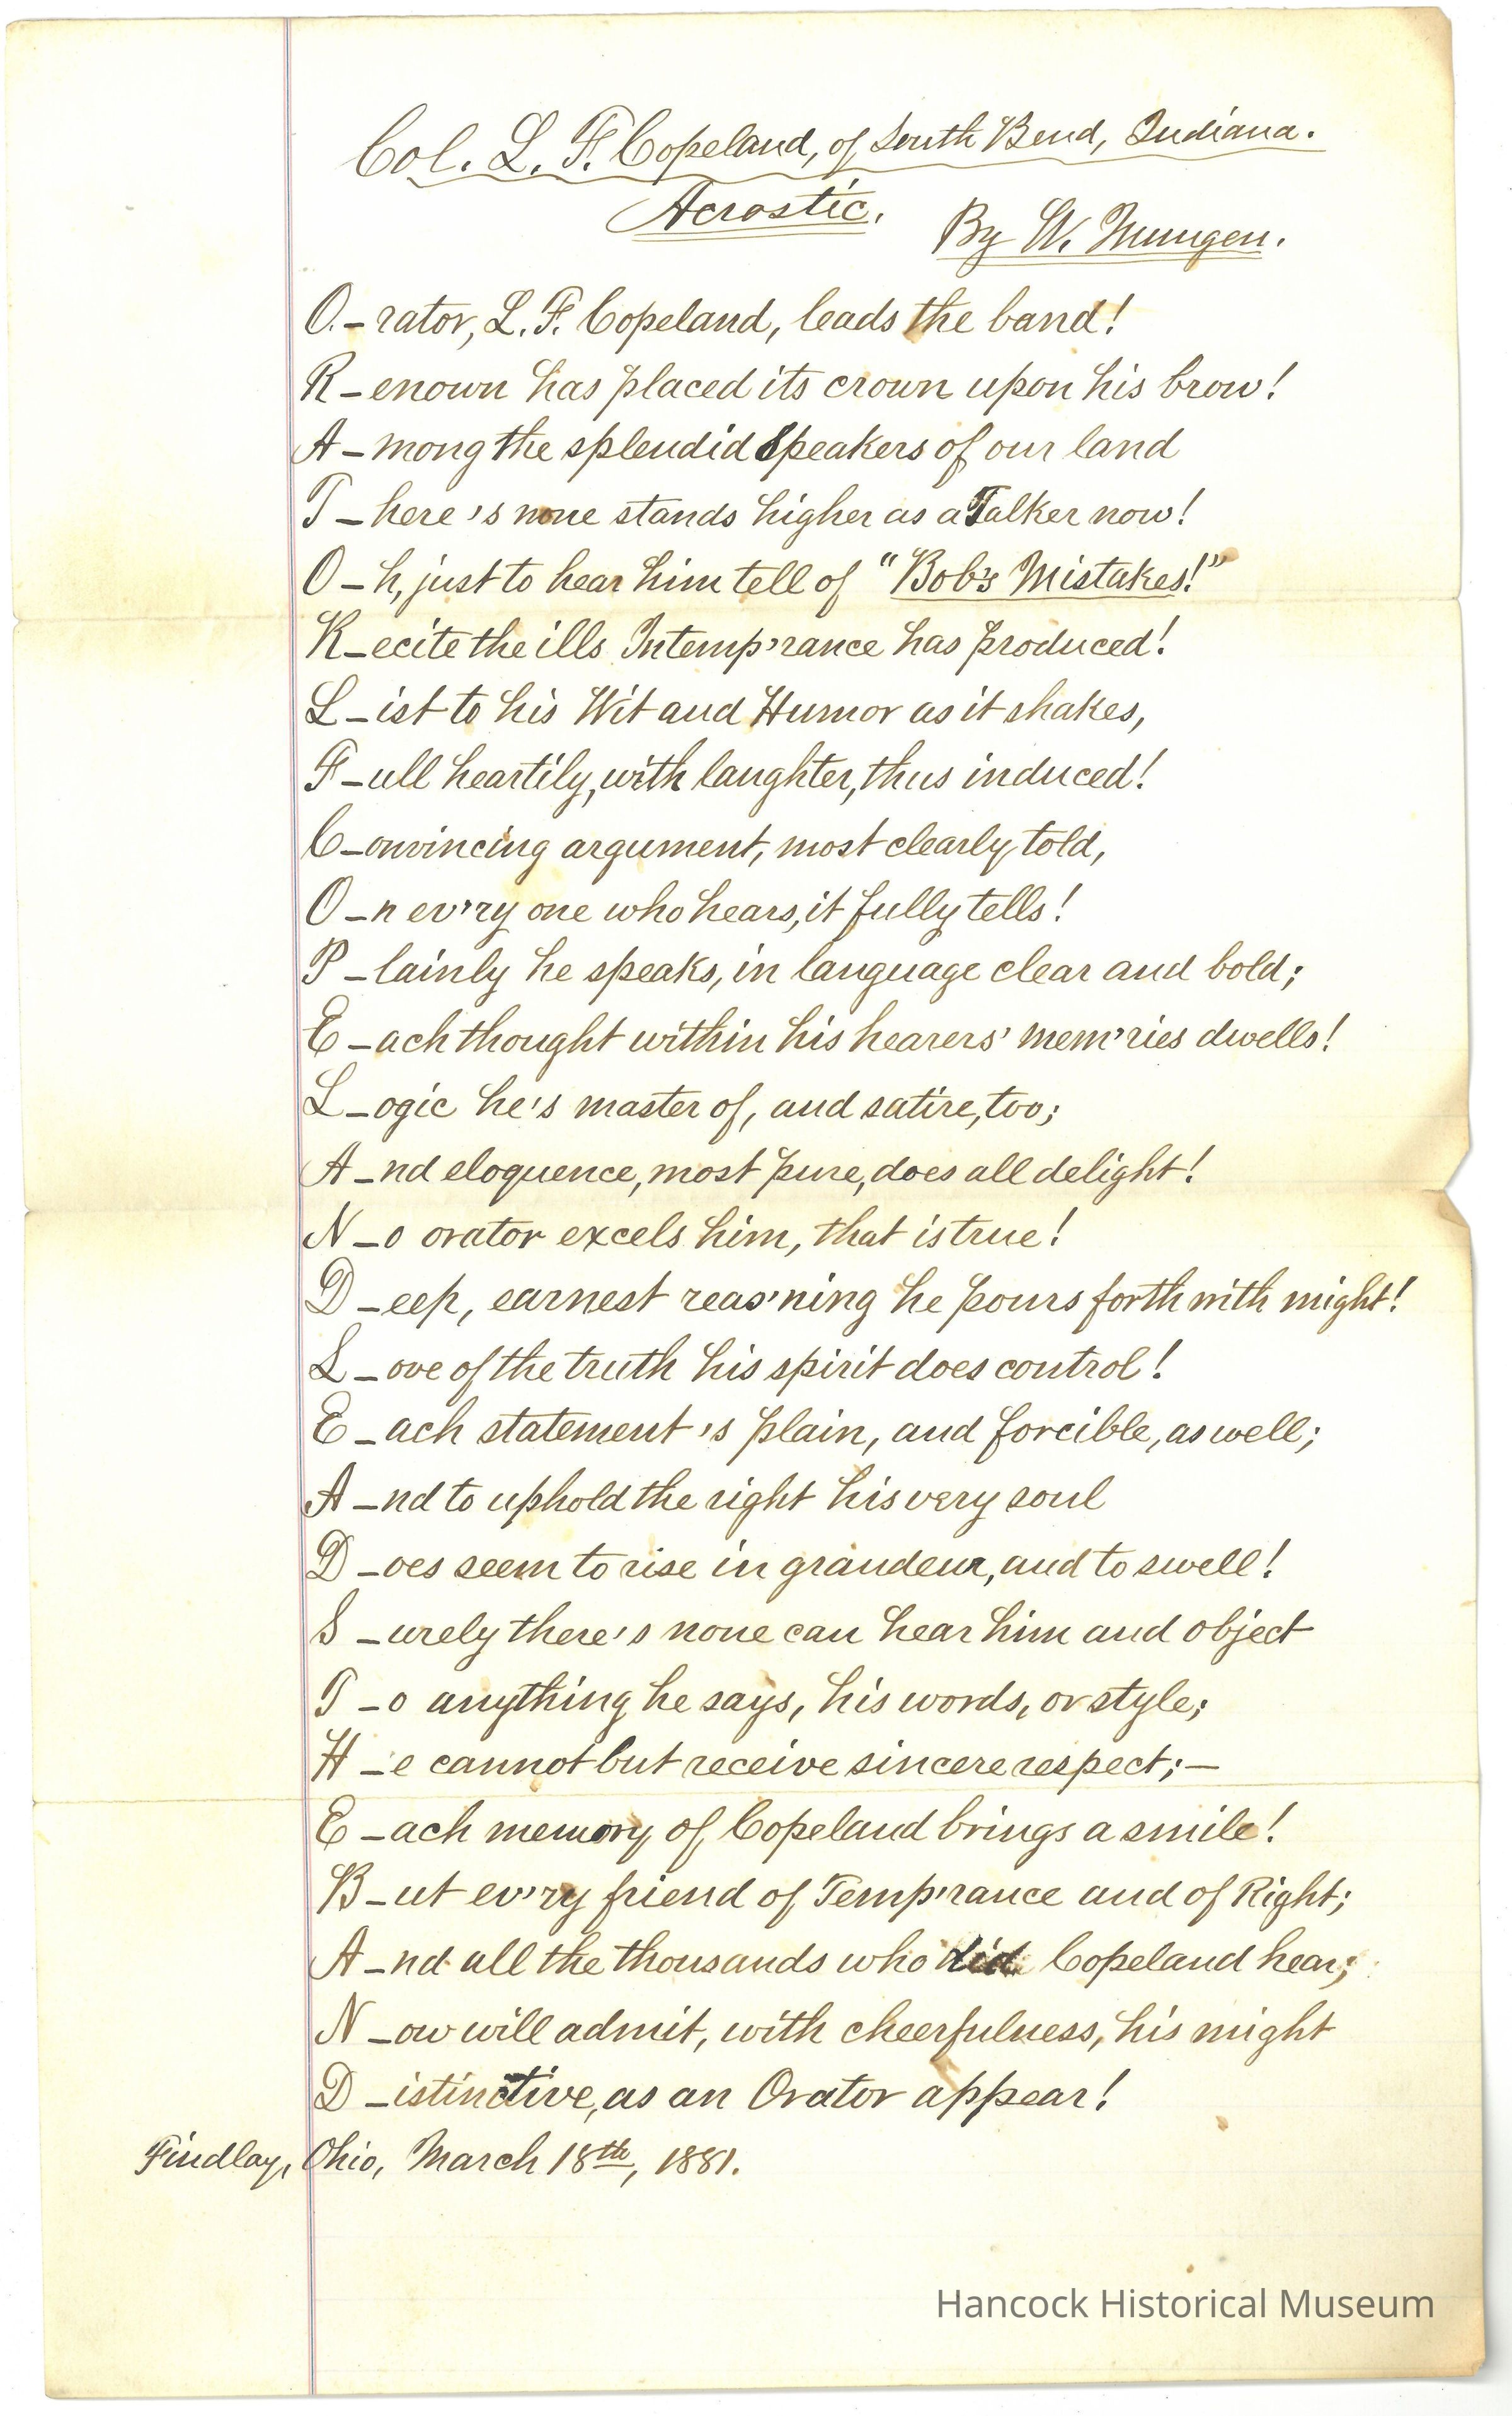 Col. L. F. Copeland, of South Bend, Indiana.
Acrostic. By W. Mungen.
O.–rator, L. F. Copeland, leads the band!
R–enown has placed its crown upon his brow!
A–mong the splendid Speakers of our land
T–here's none stands higher as a Talker now!
O–h, just to hear him tell of "Bob's Mistakes!"
R–ecite the ills Intemp'rance has produced!
L–ist to his Wit and Humor as it shakes,
F–ull heartily, with laughter, thus induced!
C–onvincing argument, most clearly told,
O–n ev'ry one who hears, it fully tells!
P–lainly he speaks, in language clear and bold;
E–ach thought within his hearers' mem'ries dwells!
L–ogic he's master of, and satire, too;
A–nd eloquence, most pure, does all delight!
N–o orator excels him, that is true!
D–eep, earnest reas'ning he pours forth with might!
L–ove of the truth his spirit does control!
E–ach statement's plain, and forcible, as well;
A–nd to uphold the right his very soul
D–oes seem to rise in grandeur, and to swell!
S–urely there's none can hear him and object
T–o anything he says, his words, or style;
H–e cannot but receive sincere respect;–
E–ach memory of Copeland brings a smile!
B–ut ev'ry friend of Temp'rance and of Right;
A–nd all the thousands who did Copeland hear;
N–ow will admit, with cheerfulness, his might
D–istinctive, as an Orator appear!
Findlay, Ohio, March 18th, 1881.
Hancock Historical Museum